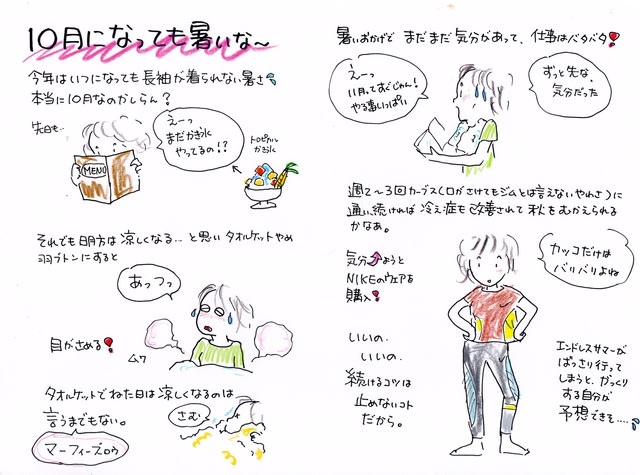 10月になっても暑いな〜
今年はいつになっても長袖が着られない暑さ
本当に10月なのかしらん?
先日も…
えーっ
まだかき氷
やってるの!?
トロピカル
かき氷
MENU
それでも明方は涼しくなる…と思いタオルケットやめ
羽ブトンにすると
あっつっ
目がさめる!
ムワ
タオルケットでねた日は涼しくなるのは
言うまでもない。
さむ
マーフィーズロウ
暑いおかげで まだまだ気分があって、仕事はバタバタ!
えーっ
11月ってすぐじゃん!
やる事いっぱい
ずっと先な、
気分だった
週2〜3回カーブス(口がさけてもジムとは言えないやわさ)に
通い続ければ冷え症も改善されて秋をむかえられる
かなあ。
気分⤴ようと
NIKEのウェアを
購入!
カッコだけは
バリバリよね
いいの.
いいの.
続けるコツは
止めないコト
だから。
エンドレスサマーが
ばっさり行って
しまうと、がっくり
する自分が
予想できそ....